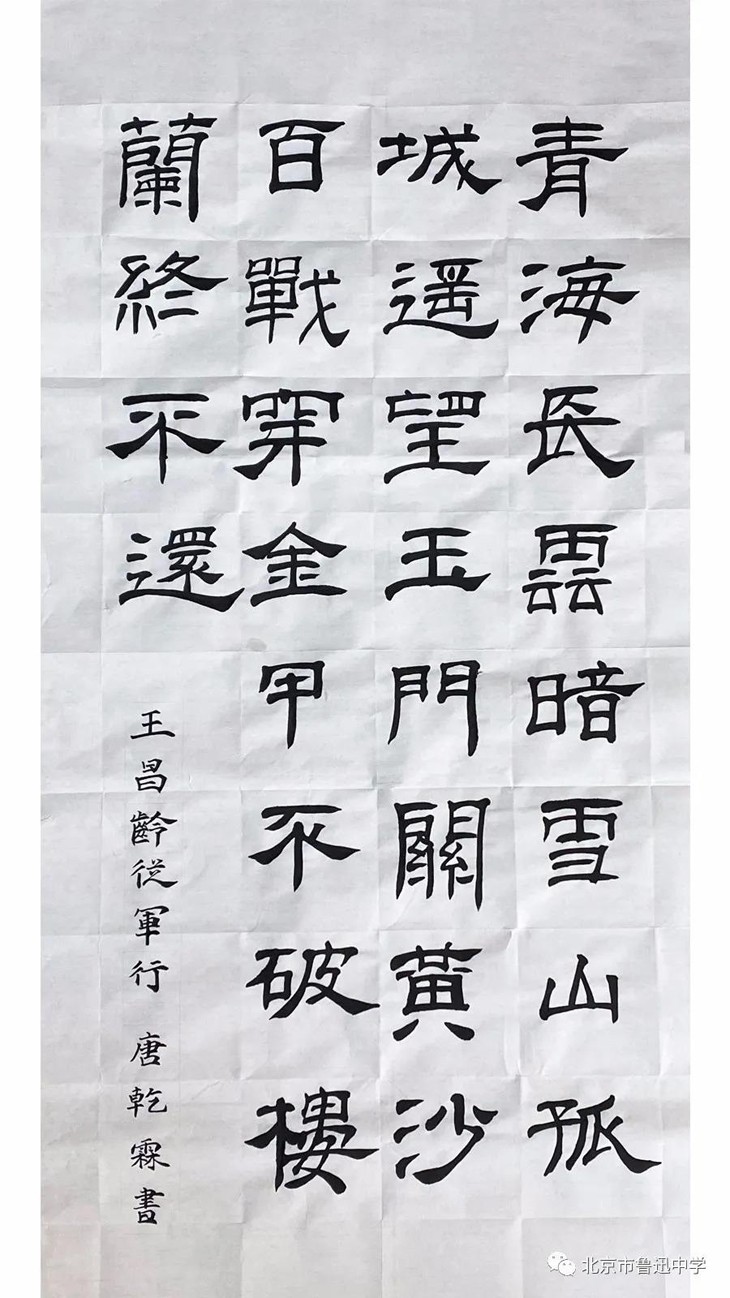 青海長雲暗雪山孤
城遥望玉門關黄沙
百戰穿金甲不破樓
蘭終不還
王昌齡從軍行 唐乾霖書
北京市鲁迅中学